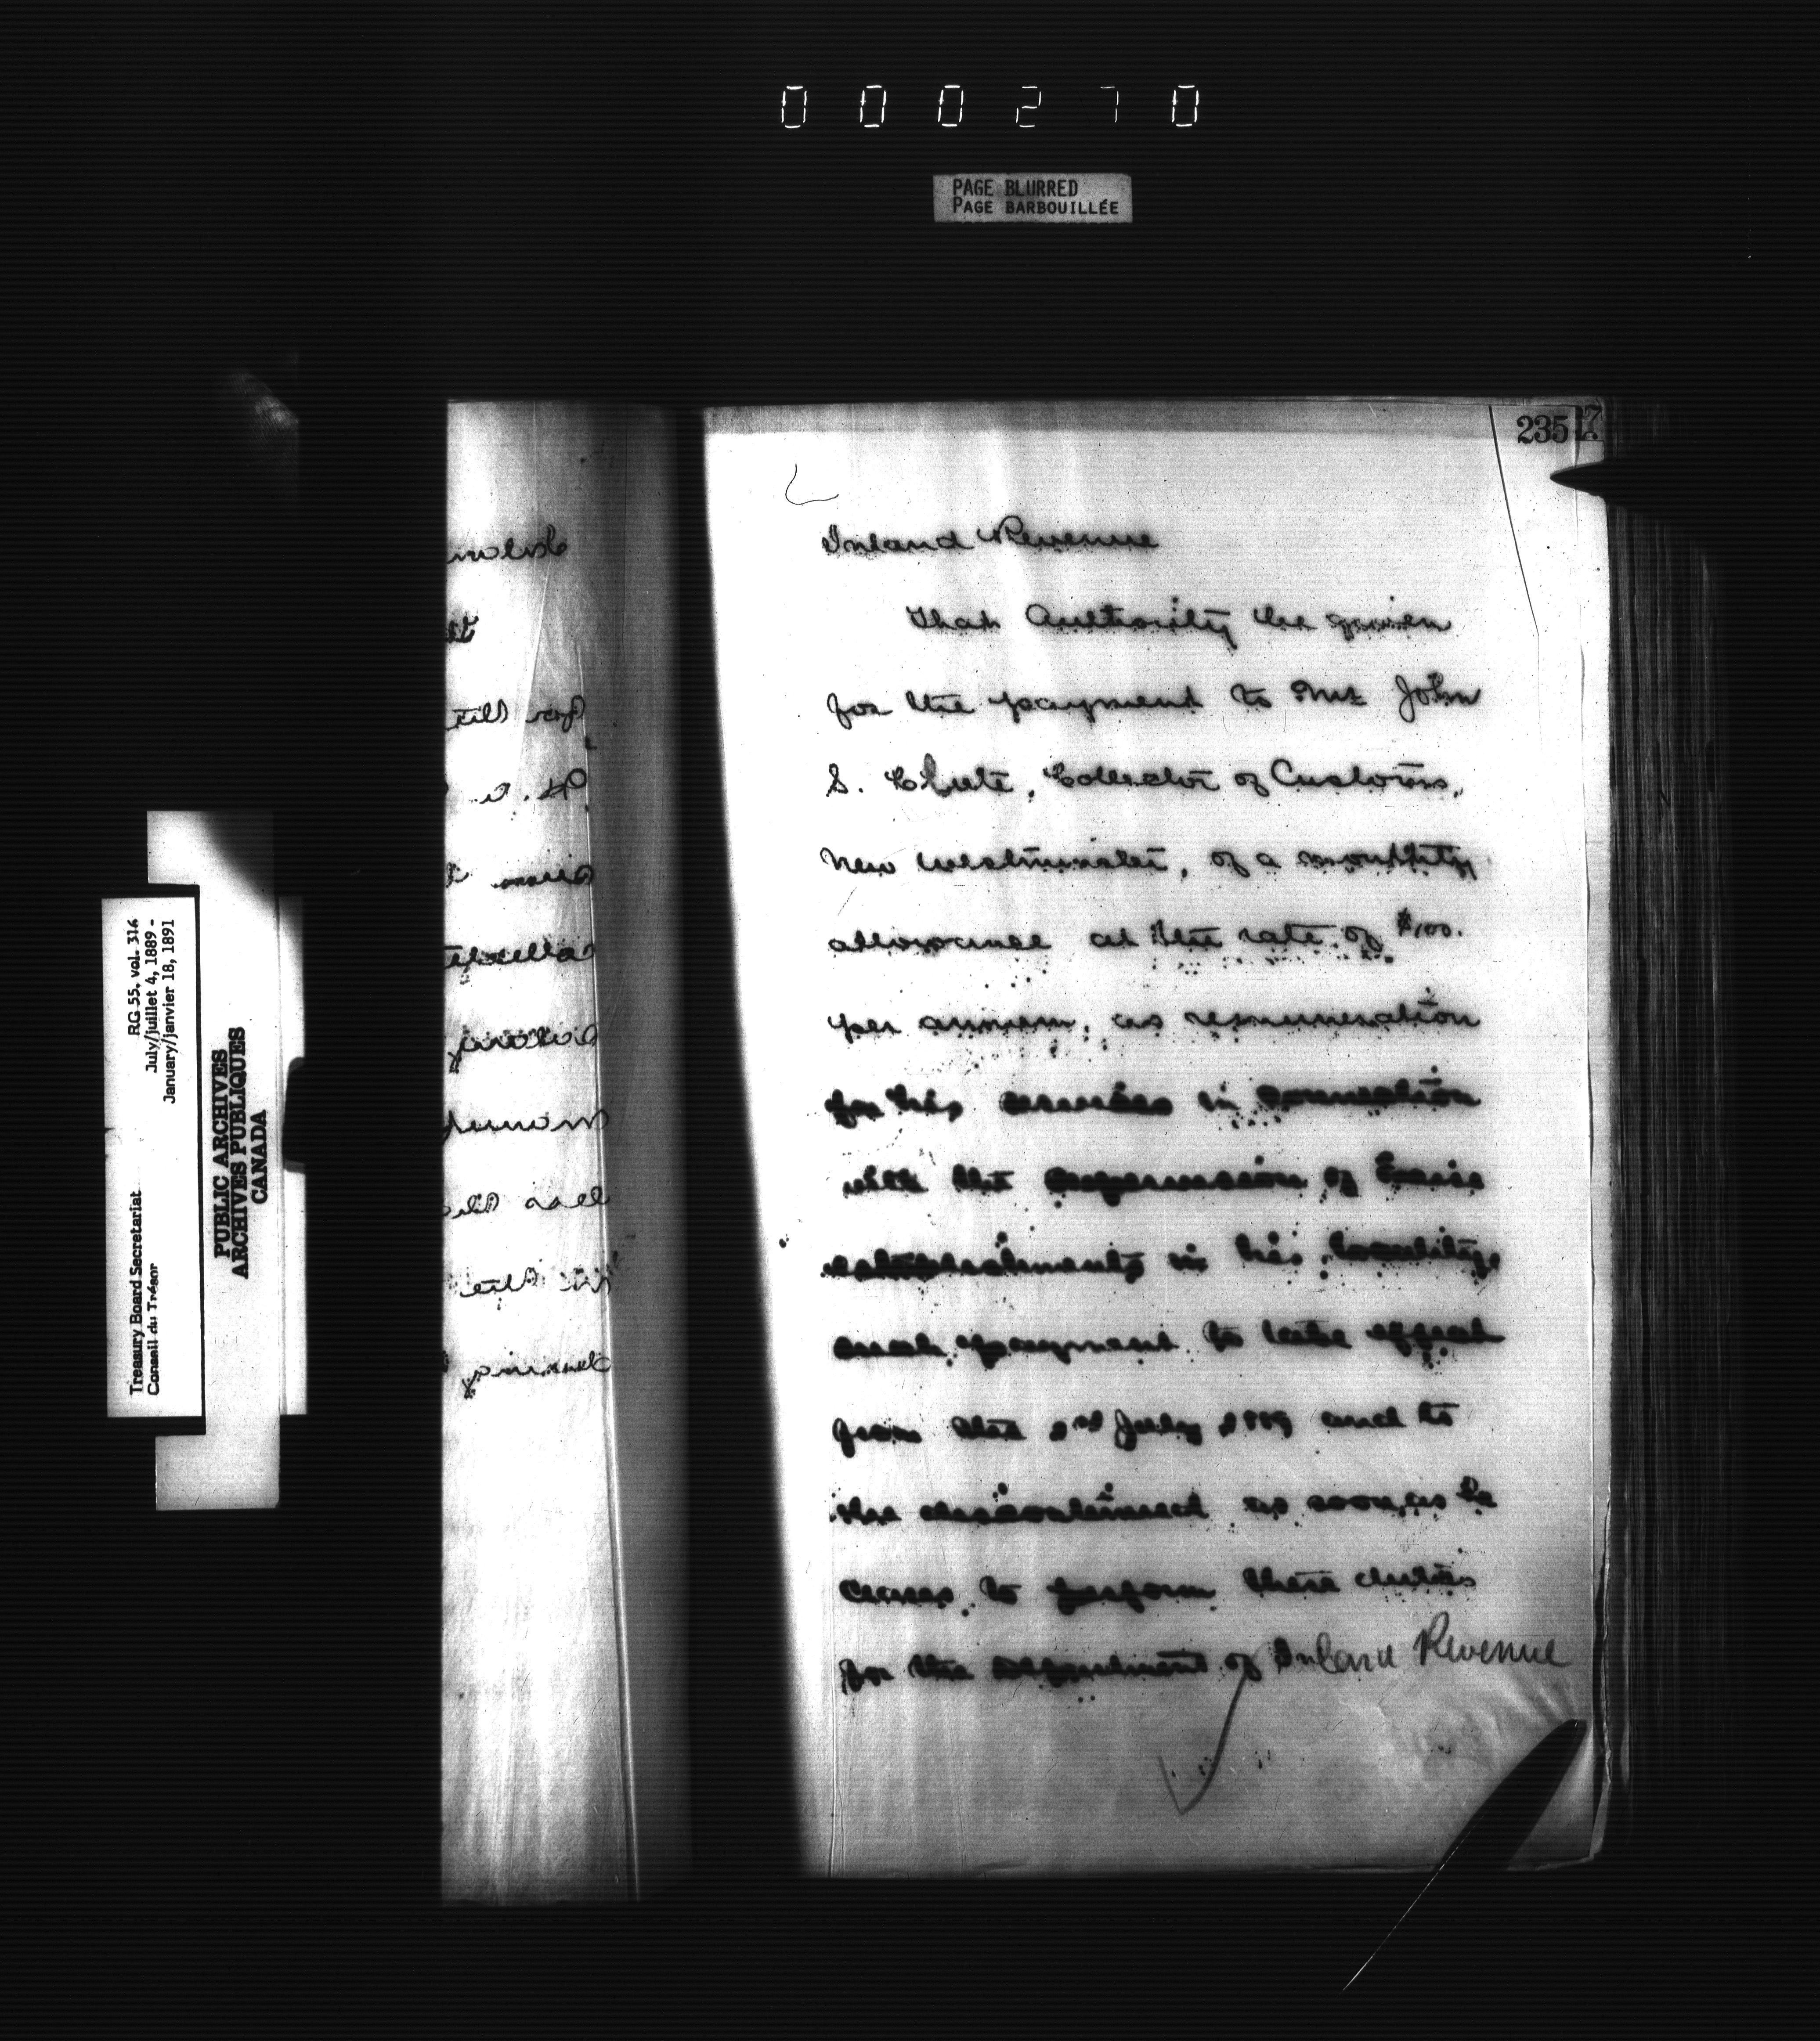 000270
PAGE BLURRED
PAGE BARBOUILLÉE
235
Inland Revenue
That Authority be given
for the payment to Mr John
S. Clute, Collector of Customs,
New Westminster, of a monthly
allowance at the rate of $100.
per annum, as remuneration
for his services in connection
with the supervision of Excise
establishments in his locality,
such payment to take effect
from the 1st July 1889 and to
be discontinued as soon as he
ceases to perform these duties
for the Department of Inland Revenue
RG 55, vol. 316
July/juillet 4, 1889 -
January/janvier 18, 1891
Treasury Board Secretariat
Conseil du Trésor
PUBLIC ARCHIVES
ARCHIVES PUBLIQUES
CANADA